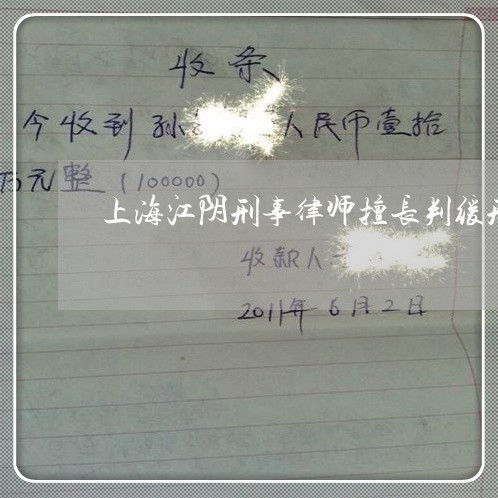 收条
今收到孙 人民币壹拾
万元整（100000）
上海江阴刑事律师擅长判缓刑
收款人
2011年6月2日